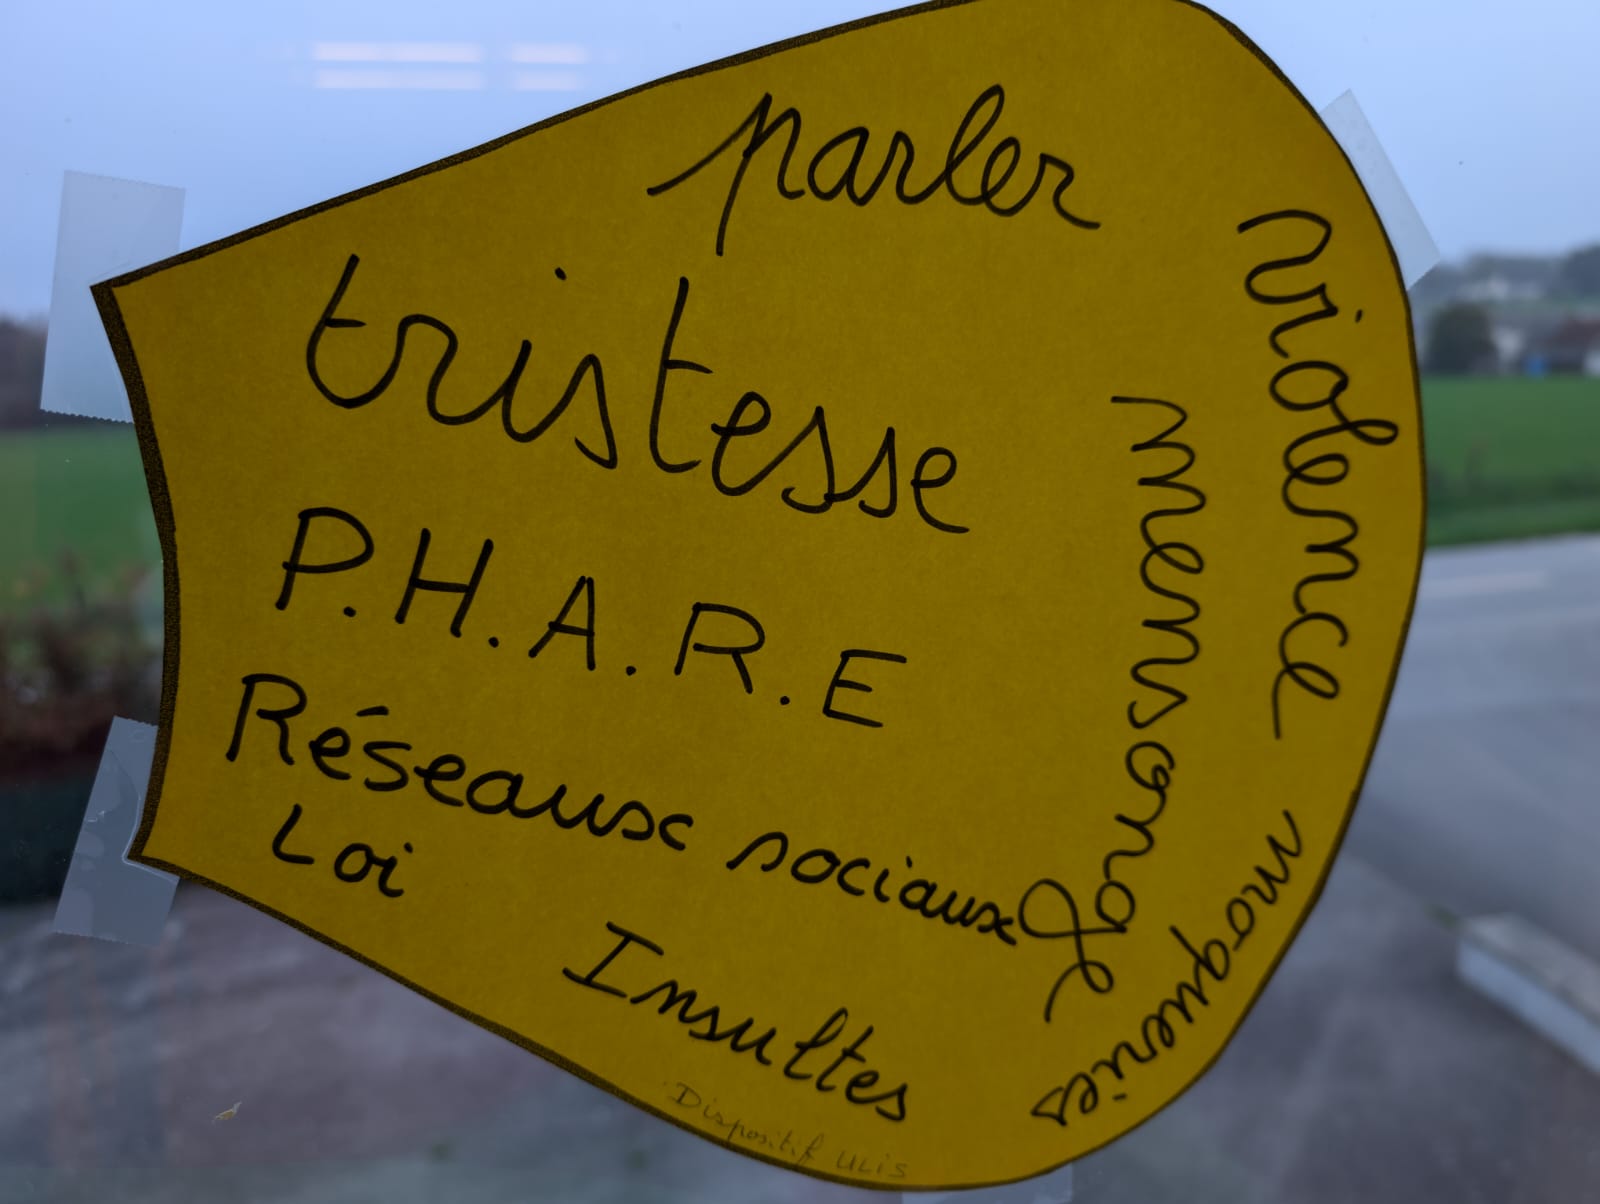 parler
tristesse
P.H.A.R.E
Réseaux sociaux
Loi
Insultes
mensonge
violence
moqueries
Dispositif ULIS